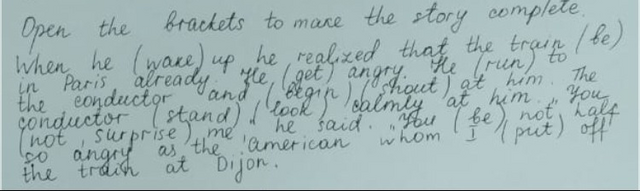 Open the brackets to make the story complete.
When he (wake) up he realized that the train (be)
in Paris already. He (get) angry. He (run) to
the conductor and (begin) (shout) at him. The
conductor (stand), (look) calmly at him. „You
(not surprise) me", he said. „You (be) not half
so angry as the American whom I (put) off
the train at Dijon.